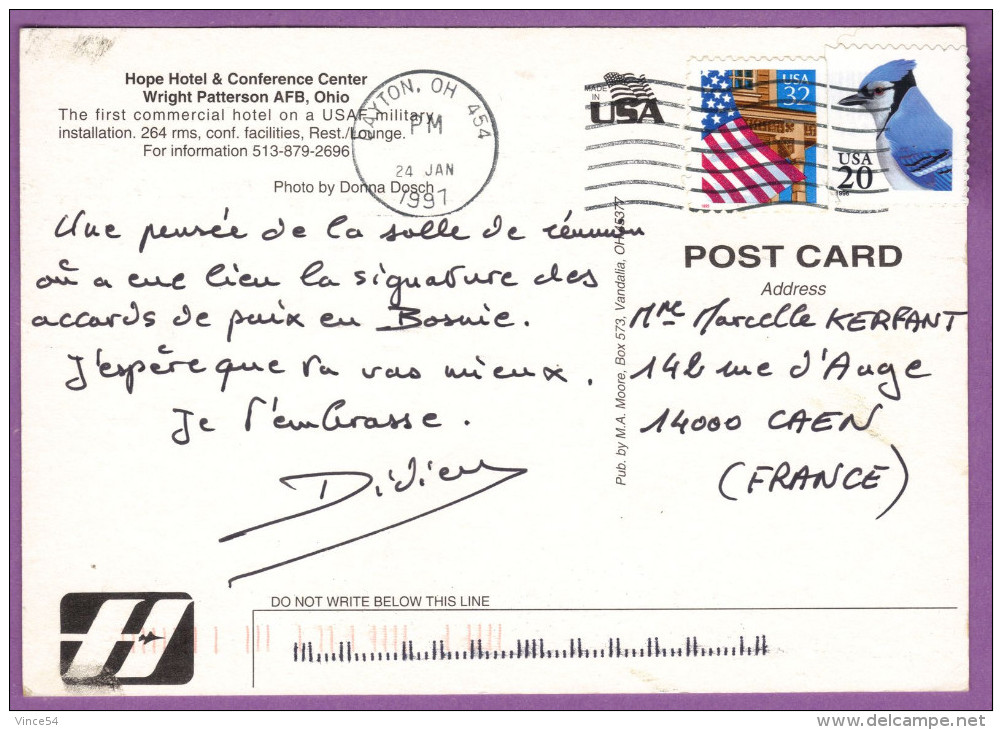 Hope Hotel & Conference Center
Wright Patterson AFB, Ohio
The first commercial hotel on a USAF military
installation. 264 rms, conf. facilities, Rest./Lounge.
For information 513-879-2696
Photo by Donna Dosch
DAYTON, OH 454
PM
24 JAN
1997
MADE
IN
USA
USA
32
USA
20
1996
Une pensée de la salle de réunion
où a eue lieu la signature des
accords de paix en Bosnie.
J'espère que Va vas mieux.
Je t'embrasse.
Didier
Pub. by M.A. Moore, Box 573, Vandalia, OH 45377
POST CARD
Address
Mme Marcelle KERFANT
142 rue d'Auge
14000 CAEN
(FRANCE)
DO NOT WRITE BELOW THIS LINE
H
Vince54
delcampe.net